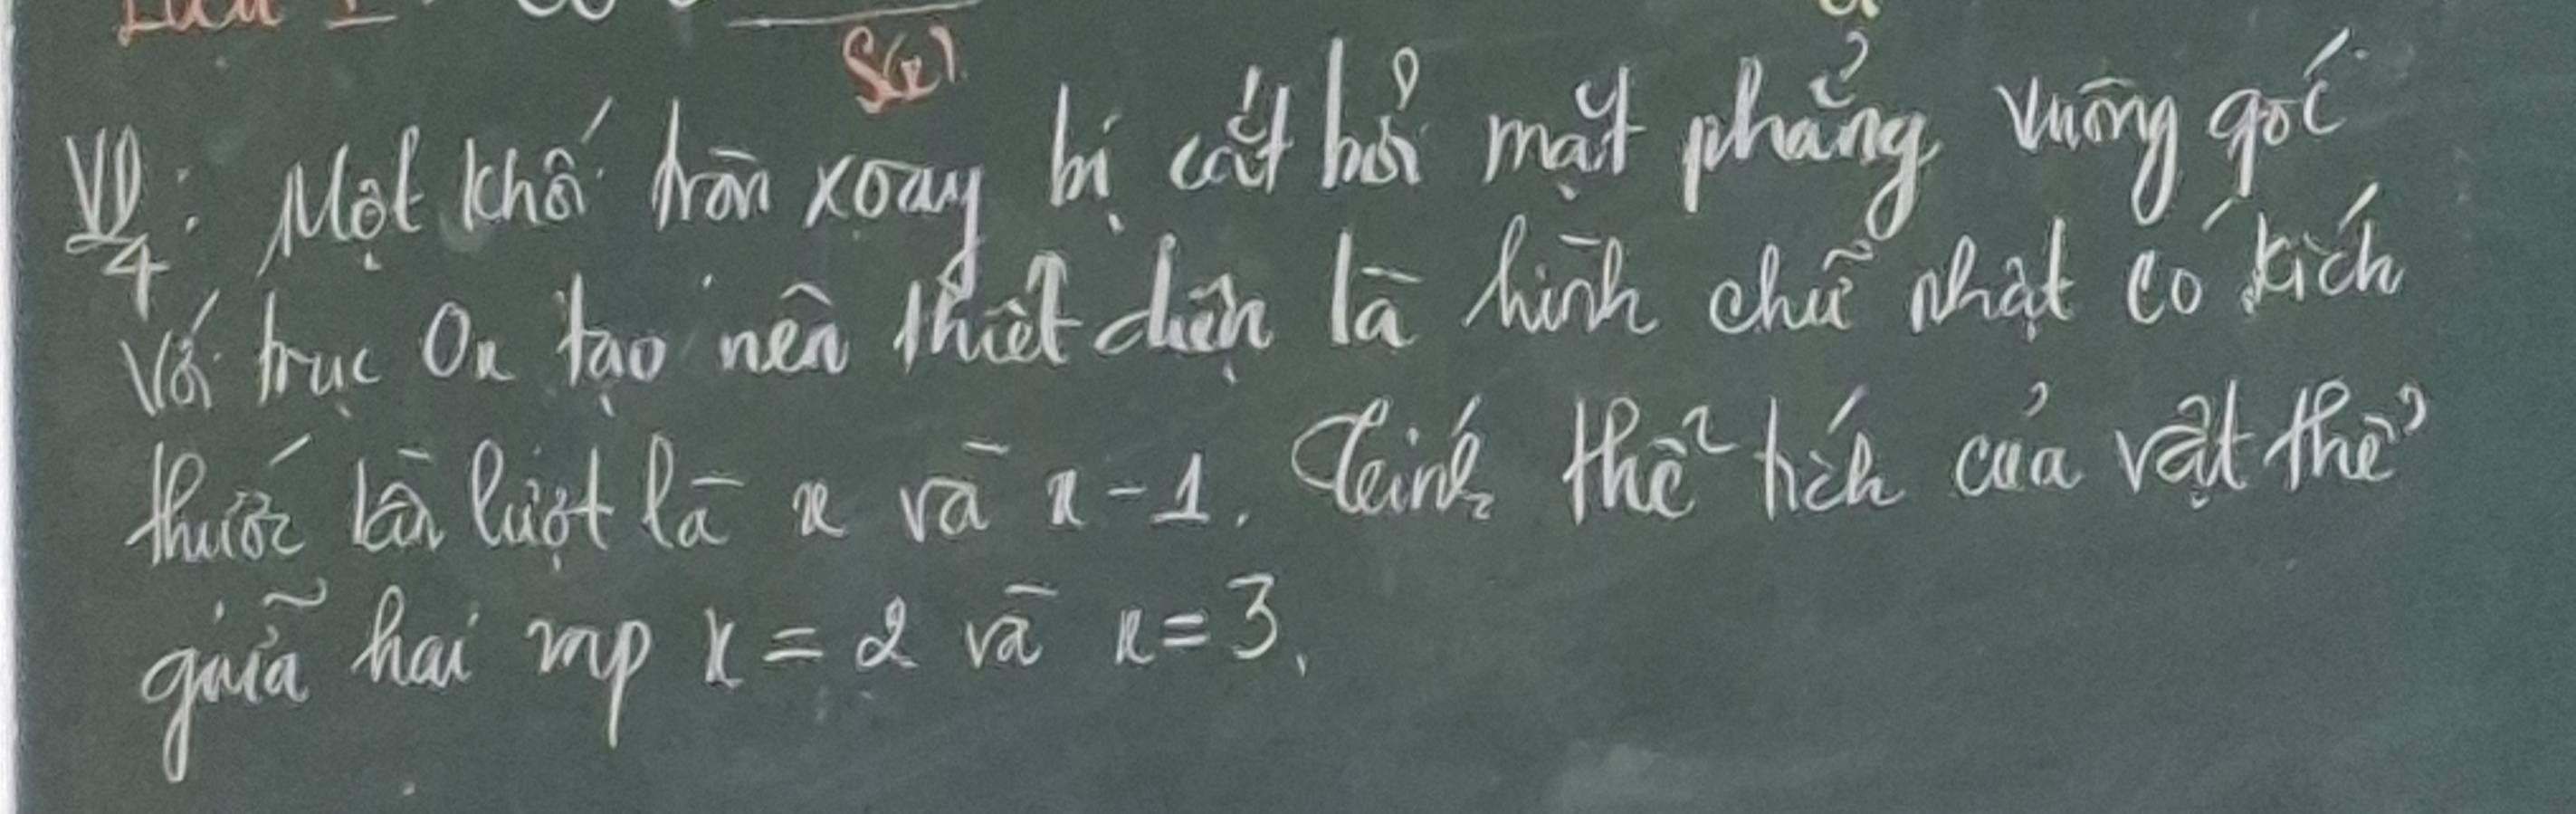 S(x)
VD4: Một khối tròn xoay bị cắt bởi mặt phẳng vuông góc
với trục Ox tạo nên thiết diện là hình chữ nhật có kích
thước lần lượt là x và x-1. Tính thể tích của vật thể
giữa hai mp x = 2 và x = 3.